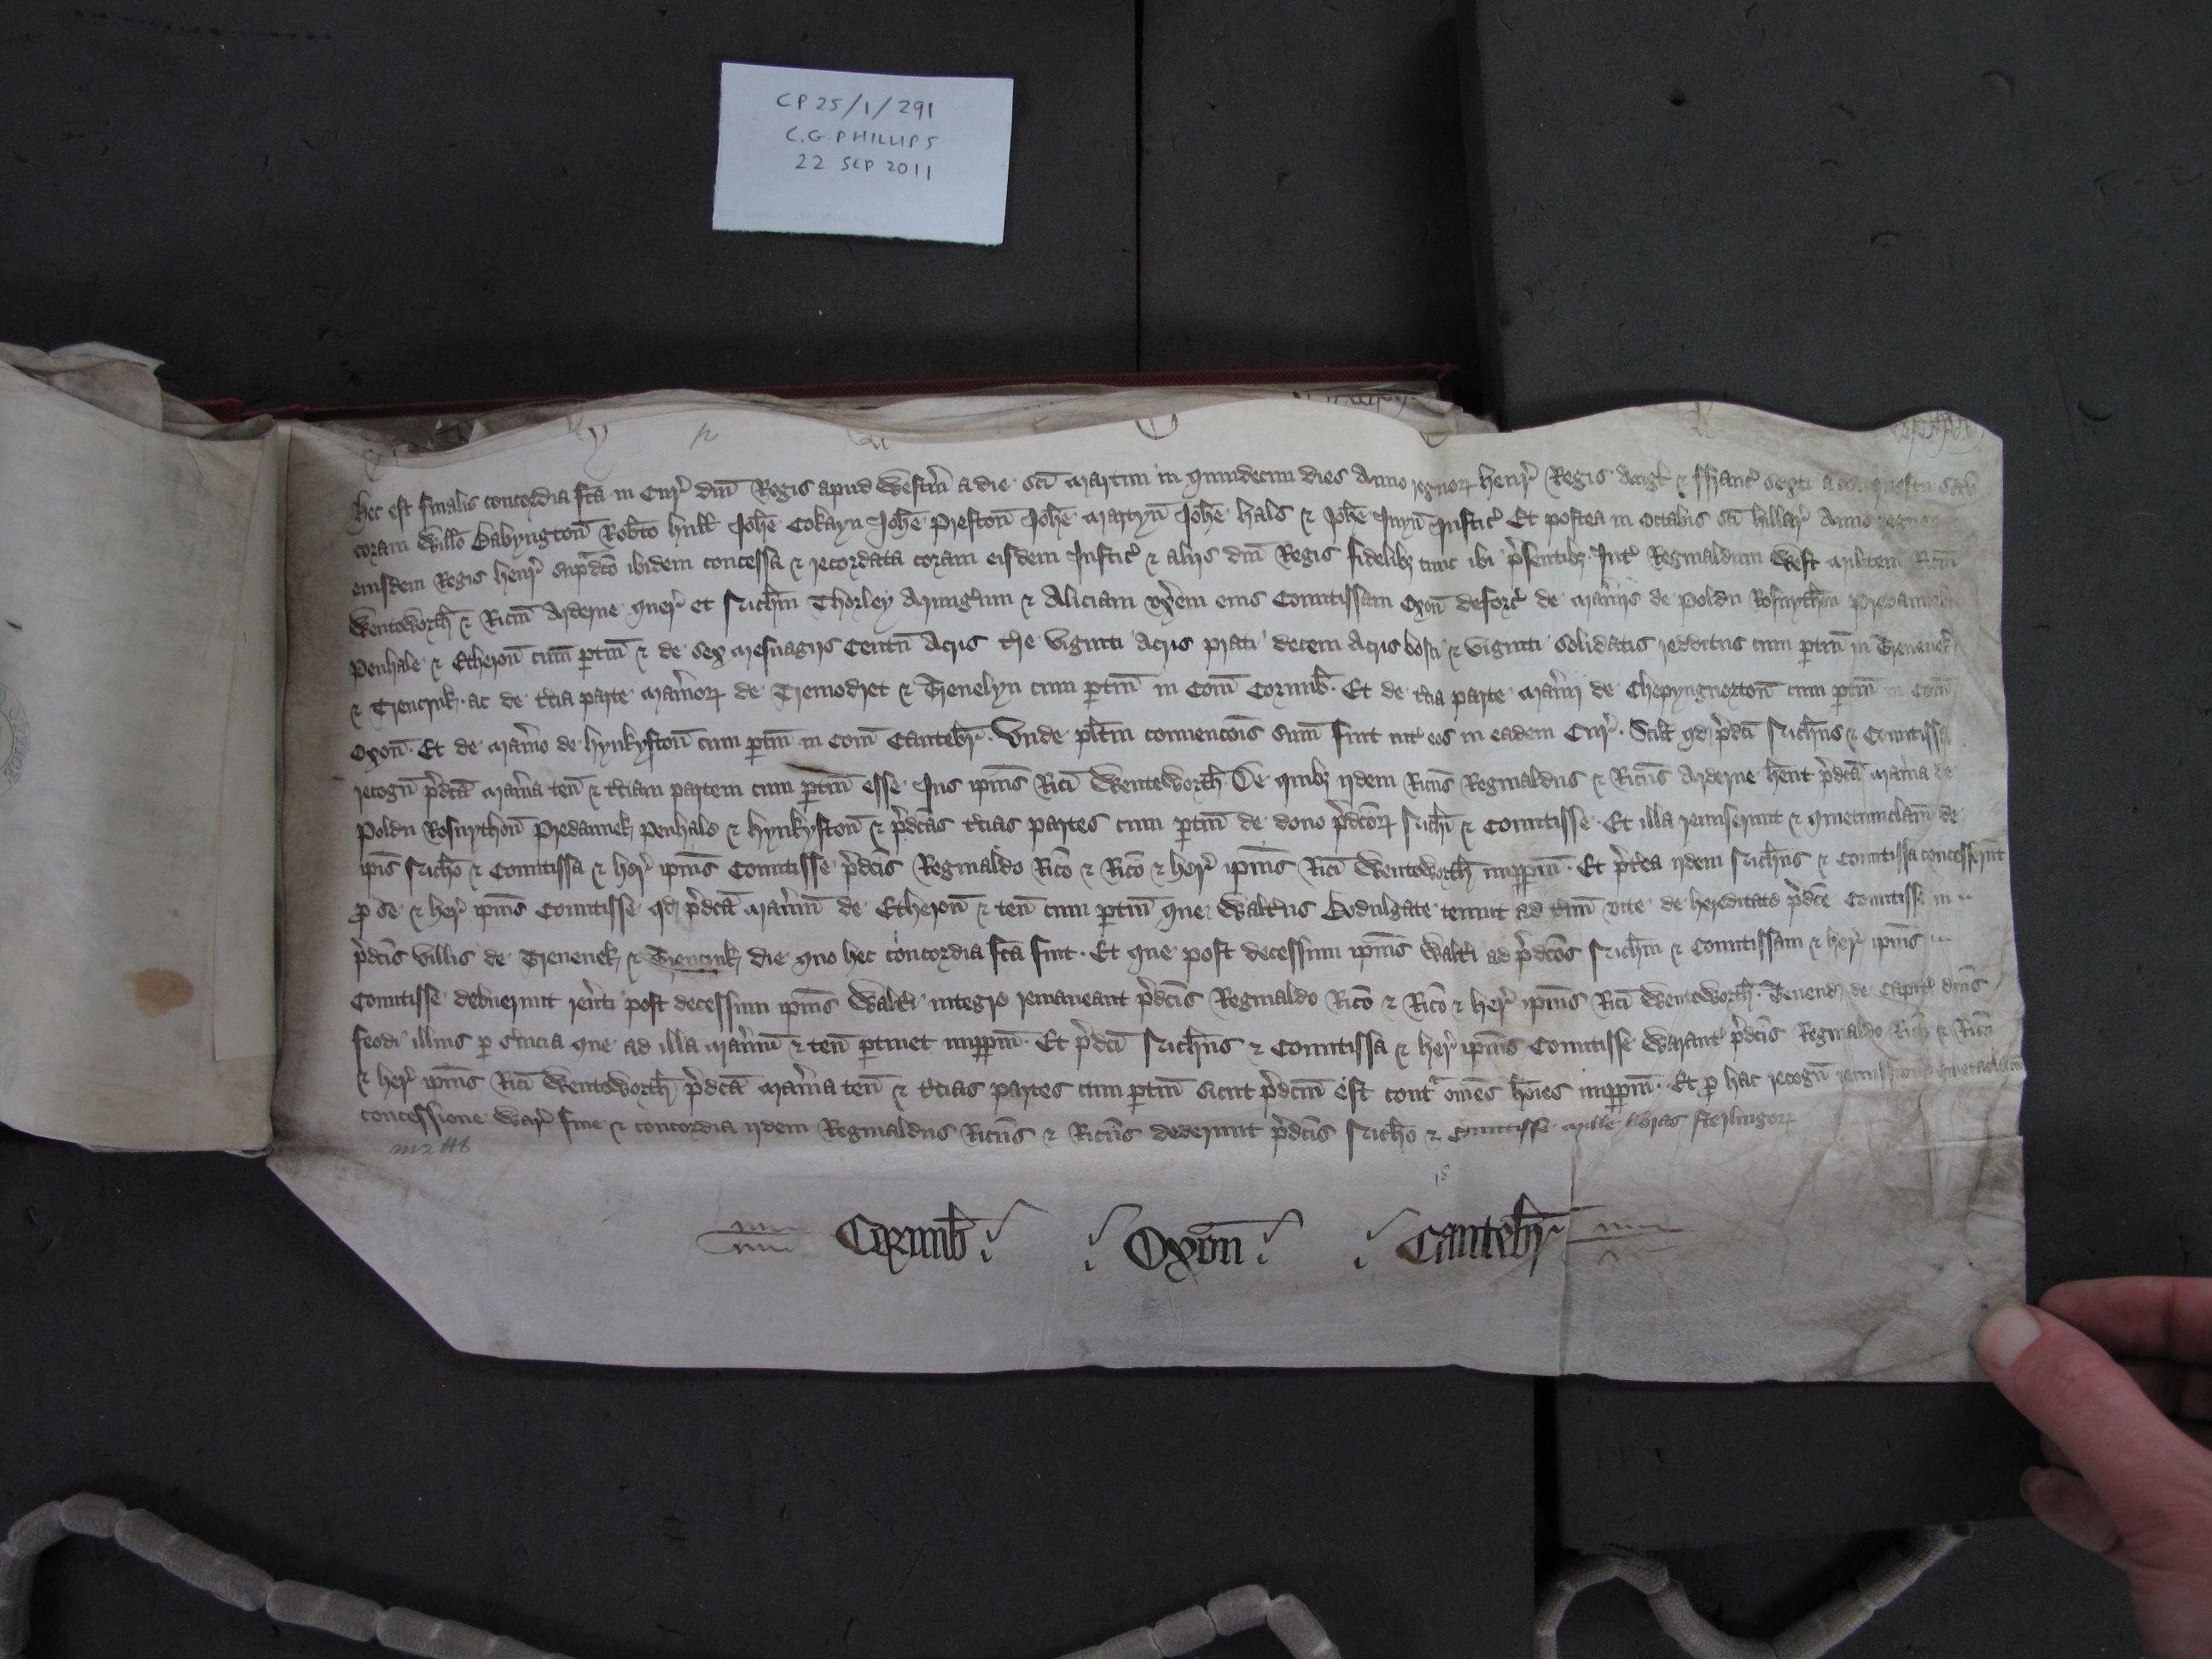 CP 25/1/291
C.G. PHILLIPS
22 SEP 2011
Hec est finalis concordia fc̄a in Cur' dn̄i Regis apud Westm̄ a die sc̄i Martini in quindecim dies Anno regnor' Henr' Regis Angl' & ffranc' sexti a conquestu
coram Will̄o Babyngton̄ Rob̄to Hull Joh̄e Cokayn Joh̄e Preston̄ Joh̄e Martyn̄ Joh̄e Hals & Joh̄e Juyn̄ Justic' Et postea in Octabis sc̄i Hillar' Anno
eiusdem Regis Henr' sup̄dc̄o ibidem concessa & recordata coram eisdem Justic' & aliis dn̄i Regis fidelibȝ tunc ibi p̄sentibȝ. Int' Reginaldum West Militem Ric̄m
Wentworth̄ & Ric̄m Arderne quer' et Rich̄m Thorley Armig'um & Aliciam vx̄em eius Comitissam Oxon̄ deforc' de Man̄iis de Poldu Rosnython̄ Predannek
Penhale & Etheron̄ cum p̄tin̄ & de sex Mesuagiis Centū Acris t're viginti Acris prati decem Acris bosci & viginti solidatis redditus cum p̄tin̄ in Trenenek
& Trencruk. ac de t'cia parte Man̄ior' de Tremodret & Trenelyn cum p̄tin̄ in Com̄ Cornub̄. Et de t'cia parte Man̄ii de Chepyngnorton̄ cum p̄tin̄ in Com̄
Oxon̄. Et de Man̄io de Hynkyston̄ cum p̄tin̄ in Com̄ Cantebr̄. Vnde pl̄itm̄ conuenc̄ois sum̄ fuit int' eos in eadem Cur'. Scil̄t qd' p̄dc̄i Rich̄us & Comitissa
recogn̄ p̄dc̄a Man̄ia ten̄ & t'ciam partem cum p̄tin̄ esse Jus ip̄ius Ric̄i Wenteworth̄. De quibȝ iidem Ric̄us Reginaldus & Ric̄us Arderne hēnt p̄dc̄a Man̄ia de
Poldu Rosnython̄ Predannek Penhale & Hynkyston̄ & p̄dc̄as t'cias partes cum p̄tin̄ de dono p̄dc̄or' Rich̄i & Comitisse. Et illa remiserunt & quietumclam̄ de
ip̄is Rich̄o & Comitissa & her' ip̄ius Comitisse p̄dc̄is Reginaldo Ric̄o & Ric̄o & her' ip̄ius Ric̄i Wentworth̄ imp̄p̄m̄. Et p̄t'ea iidem Rich̄us & Comitissa concesserunt
p̄ se & her' ip̄ius Comitisse qd' p̄dc̄a Man̄ium de Etheron̄ & ten̄ cum p̄tin̄ que Walt'us Bodulgate tenuit ad t'm̄ vite de hereditate p̄dc̄e Comitisse in
p̄dc̄is villis de Trenenek & Trencruk die quo hec concordia fc̄a fuit. Et que post decessum ip̄ius Walt'i ad p̄dc̄os Rich̄m & Comitissam & her' ip̄ius
Comitisse debuerunt reu'ti post decessum ip̄ius Walt'i integre remaneant p̄dc̄is Reginaldo Ric̄o & Ric̄o & her' ip̄ius Ric̄i Wenteworth̄. Tenend' de Capit' dn̄is
feodi illius p̄ s'uicia que ad illa Man̄ium & ten̄ p̄tinet imp̄p̄m̄. Et p̄dc̄i Rich̄us & Comitissa & her' ip̄ius Comitisse Warant' p̄dc̄is Reginaldo Ric̄o & Ric̄o
& her' ip̄ius Ric̄i Wentworth̄ p̄dc̄a Man̄ia ten̄ & t'cias partes cum p̄tin̄ sicut p̄dc̄m̄ est cont̄ om̄es hōies imp̄p̄m̄. Et p̄ hac recogn̄ remissione quietaclam̄
concessione War' fine & concordia iidem Reginaldus Ric̄us & Ric̄us dederunt p̄dc̄is Rich̄o & Comitisse Mille libras sterlingor'
Cornub̄ Oxon̄ Cantebr̄